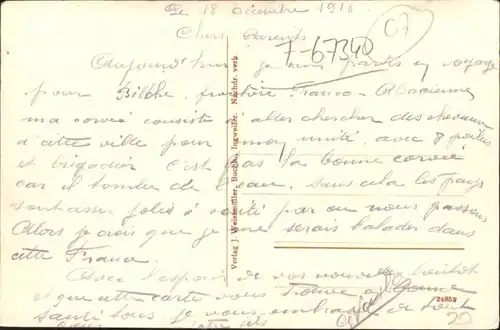 Le 18 Décembre 1918
Chers Parents
07
7-67340
Aujourd'hui je suis partis en voyage
pour frontière Franco-Alsacienne
ma corvée consiste à aller chercher des chevaux
d'cette ville pour mon unité avec 8 poilus
et brigadier c'est pas la bonne corvée
car il tombe de l'eau, sans cela les pays
sont assez jolis à par ou nous passons
Alors je crois que je me serais balader dans
cette France.
Avec l'espoir de vos nouvelles bientot
et que cette carte vous trouve en bonne
santé tous je vous embrasse de tout
votre fils
Verlag J. Weissmüller, Buchb., Ingweiler. Nachdr. verb
24859
20